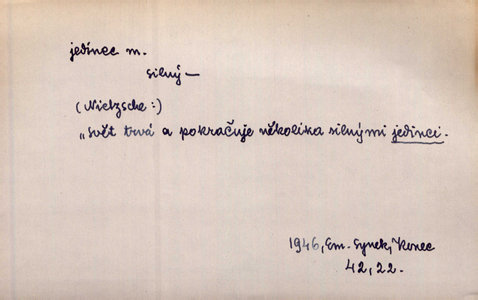 jedinec m.
silný —
(Nietzsche:)
„svět trvá a pokračuje několika silnými jedinci.
1946, Em. Synek, Konec
42, 22.